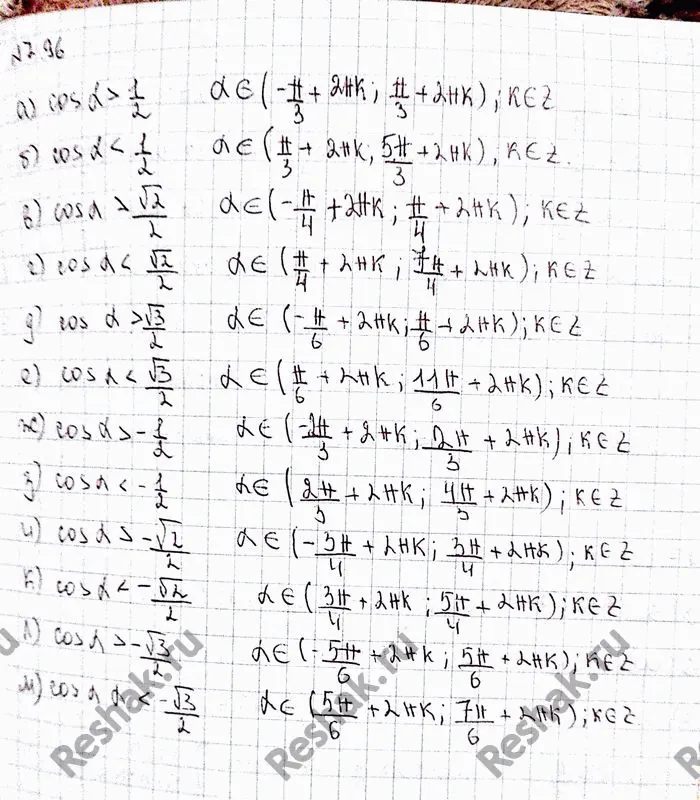 №7.96
а) cos α > 1/2 α ∈ (-π/3 + 2πk; π/3 + 2πk); k ∈ Z
б) cos α < 1/2 α ∈ (π/3 + 2πk, 5π/3 + 2πk), k ∈ Z.
в) cos α > √2/2 α ∈ (-π/4 + 2πk; π/4 + 2πk); k ∈ Z
г) cos α < √2/2 α ∈ (π/4 + 2πk; 7π/4 + 2πk); k ∈ Z
д) cos α > √3/2 α ∈ (-π/6 + 2πk; π/6 + 2πk); k ∈ Z
е) cos α < √3/2 α ∈ (π/6 + 2πk; 11π/6 + 2πk); k ∈ Z
ж) cos α > -1/2 α ∈ (-2π/3 + 2πk; 2π/3 + 2πk), k ∈ Z
з) cos α < -1/2 α ∈ (2π/3 + 2πk; 4π/3 + 2πk); k ∈ Z
и) cos α > -√2/2 α ∈ (-3π/4 + 2πk; 3π/4 + 2πk); k ∈ Z
к) cos α < -√2/2 α ∈ (3π/4 + 2πk; 5π/4 + 2πk); k ∈ Z
л) cos α > -√3/2 α ∈ (-5π/6 + 2πk; 5π/6 + 2πk); k ∈ Z
м) cos α < -√3/2 α ∈ (5π/6 + 2πk; 7π/6 + 2πk); k ∈ Z
Reshak.ru Reshak.ru Reshak.ru